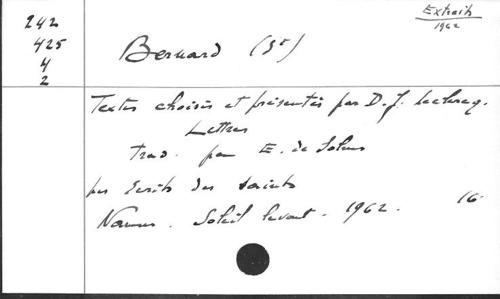 Extraits
1962
242
425
4
2
Bernard (St)
Textes choisis et présentés par D. J. Leclercq.
Lettres
trad. par E. de Solms
Les Ecrits des saints
Namur. Soleil levant. 1962. 16